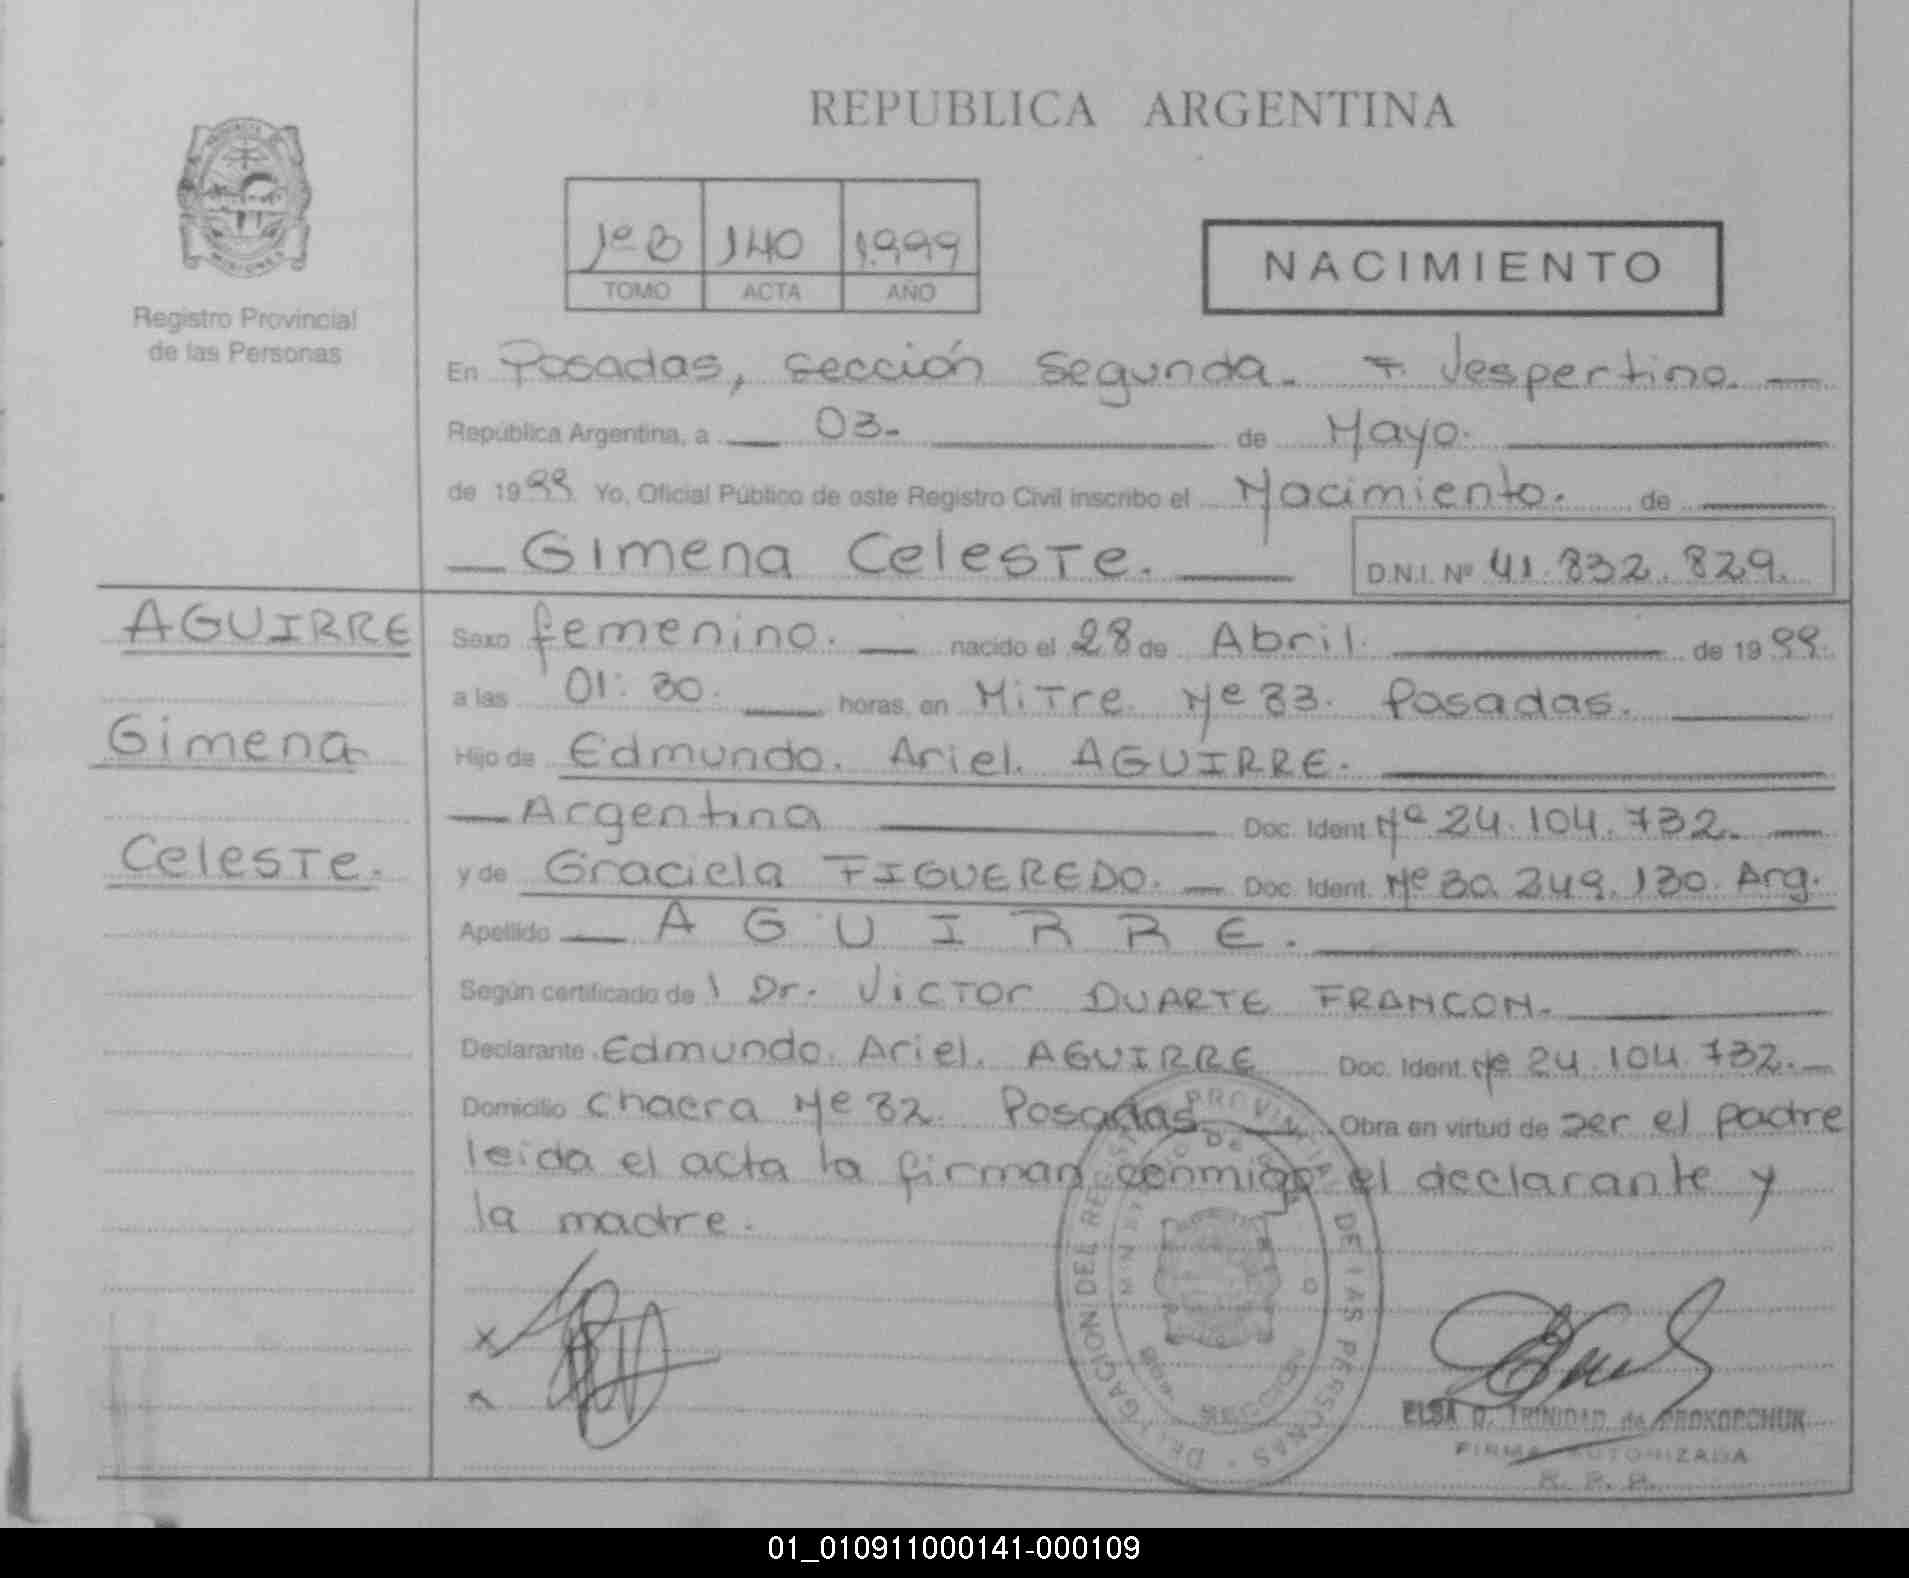 REPUBLICA ARGENTINA
Registro Provincial
de las Personas
1º B 140 1.999
TOMO ACTA AÑO
NACIMIENTO
En Posadas, sección Segunda. T. Vespertino.
República Argentina, a 03. de Mayo.
de 1999 Yo, Oficial Público de este Registro Civil inscribo el Nacimiento. de
Gimena Celeste. D.N.I. Nº 41.832.829.
AGUIRRE
Gimena
Celeste.
Sexo femenino. nacido el 28 de Abril. de 1999.
a las 01:30. horas, en Mitre. Nº 33. Posadas.
Hijo de Edmundo. Ariel. AGUIRRE.
Argentina Doc. Ident. Nº 24.104.732.
y de Graciela FIGUEREDO. Doc. Ident. Nº 30.249.130. Arg.
Apellido AGUIRRE.
Según certificado de Dr. Victor DUARTE FRANCON.
Declarante Edmundo. Ariel. AGUIRRE Doc. Ident. Nº 24.104.732.
Domicilio Chacra Nº 32. Posadas Obra en virtud de ser el padre
leida el acta la firman conmigo el declarante y
la madre.
DELEGACION DEL REGISTRO PROVINCIAL DE LAS PERSONAS
SECCION
ELSA TRINIDAD de PROKOPCHUK
FIRMA AUTORIZADA
R. P. P.
01_010911000141-000109